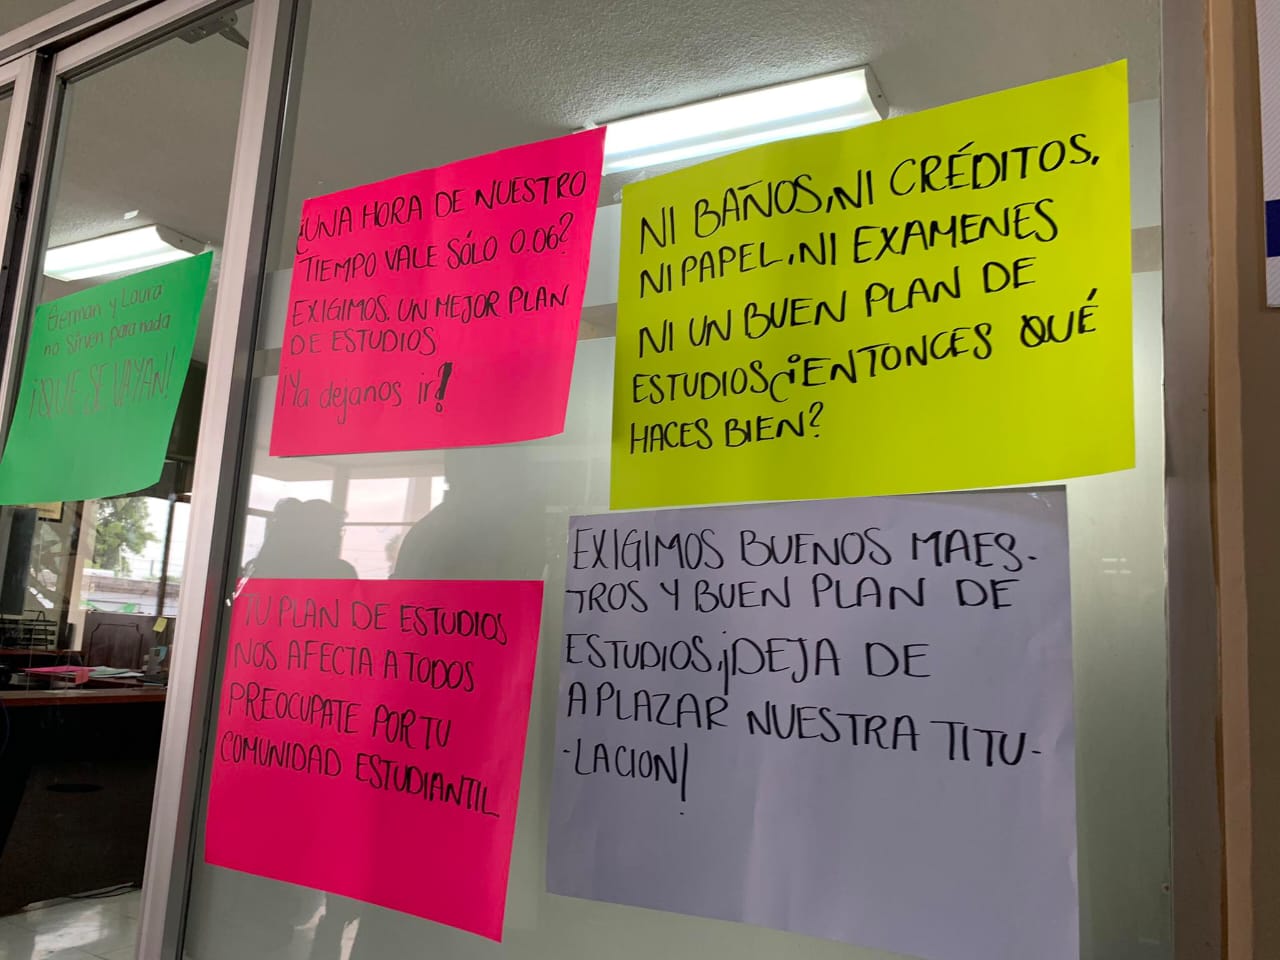 German y Laura
no sirven para nada
¡QUE SE VAYAN!
¿UNA HORA DE NUESTRO
TIEMPO VALE SÓLO 0.06?
EXIGIMOS UN MEJOR PLAN
DE ESTUDIOS
¡Ya dejanos ir!
NI BAÑOS, NI CRÉDITOS,
NI PAPEL, NI EXAMENES
NI UN BUEN PLAN DE
ESTUDIOS ¿ENTONCES QUÉ
HACES BIEN?
TU PLAN DE ESTUDIOS
NOS AFECTA A TODOS
PREOCUPATE POR TU
COMUNIDAD ESTUDIANTIL
EXIGIMOS BUENOS MAES-
TROS Y BUEN PLAN DE
ESTUDIOS, ¡DEJA DE
APLAZAR NUESTRA TITU-
-LACION!